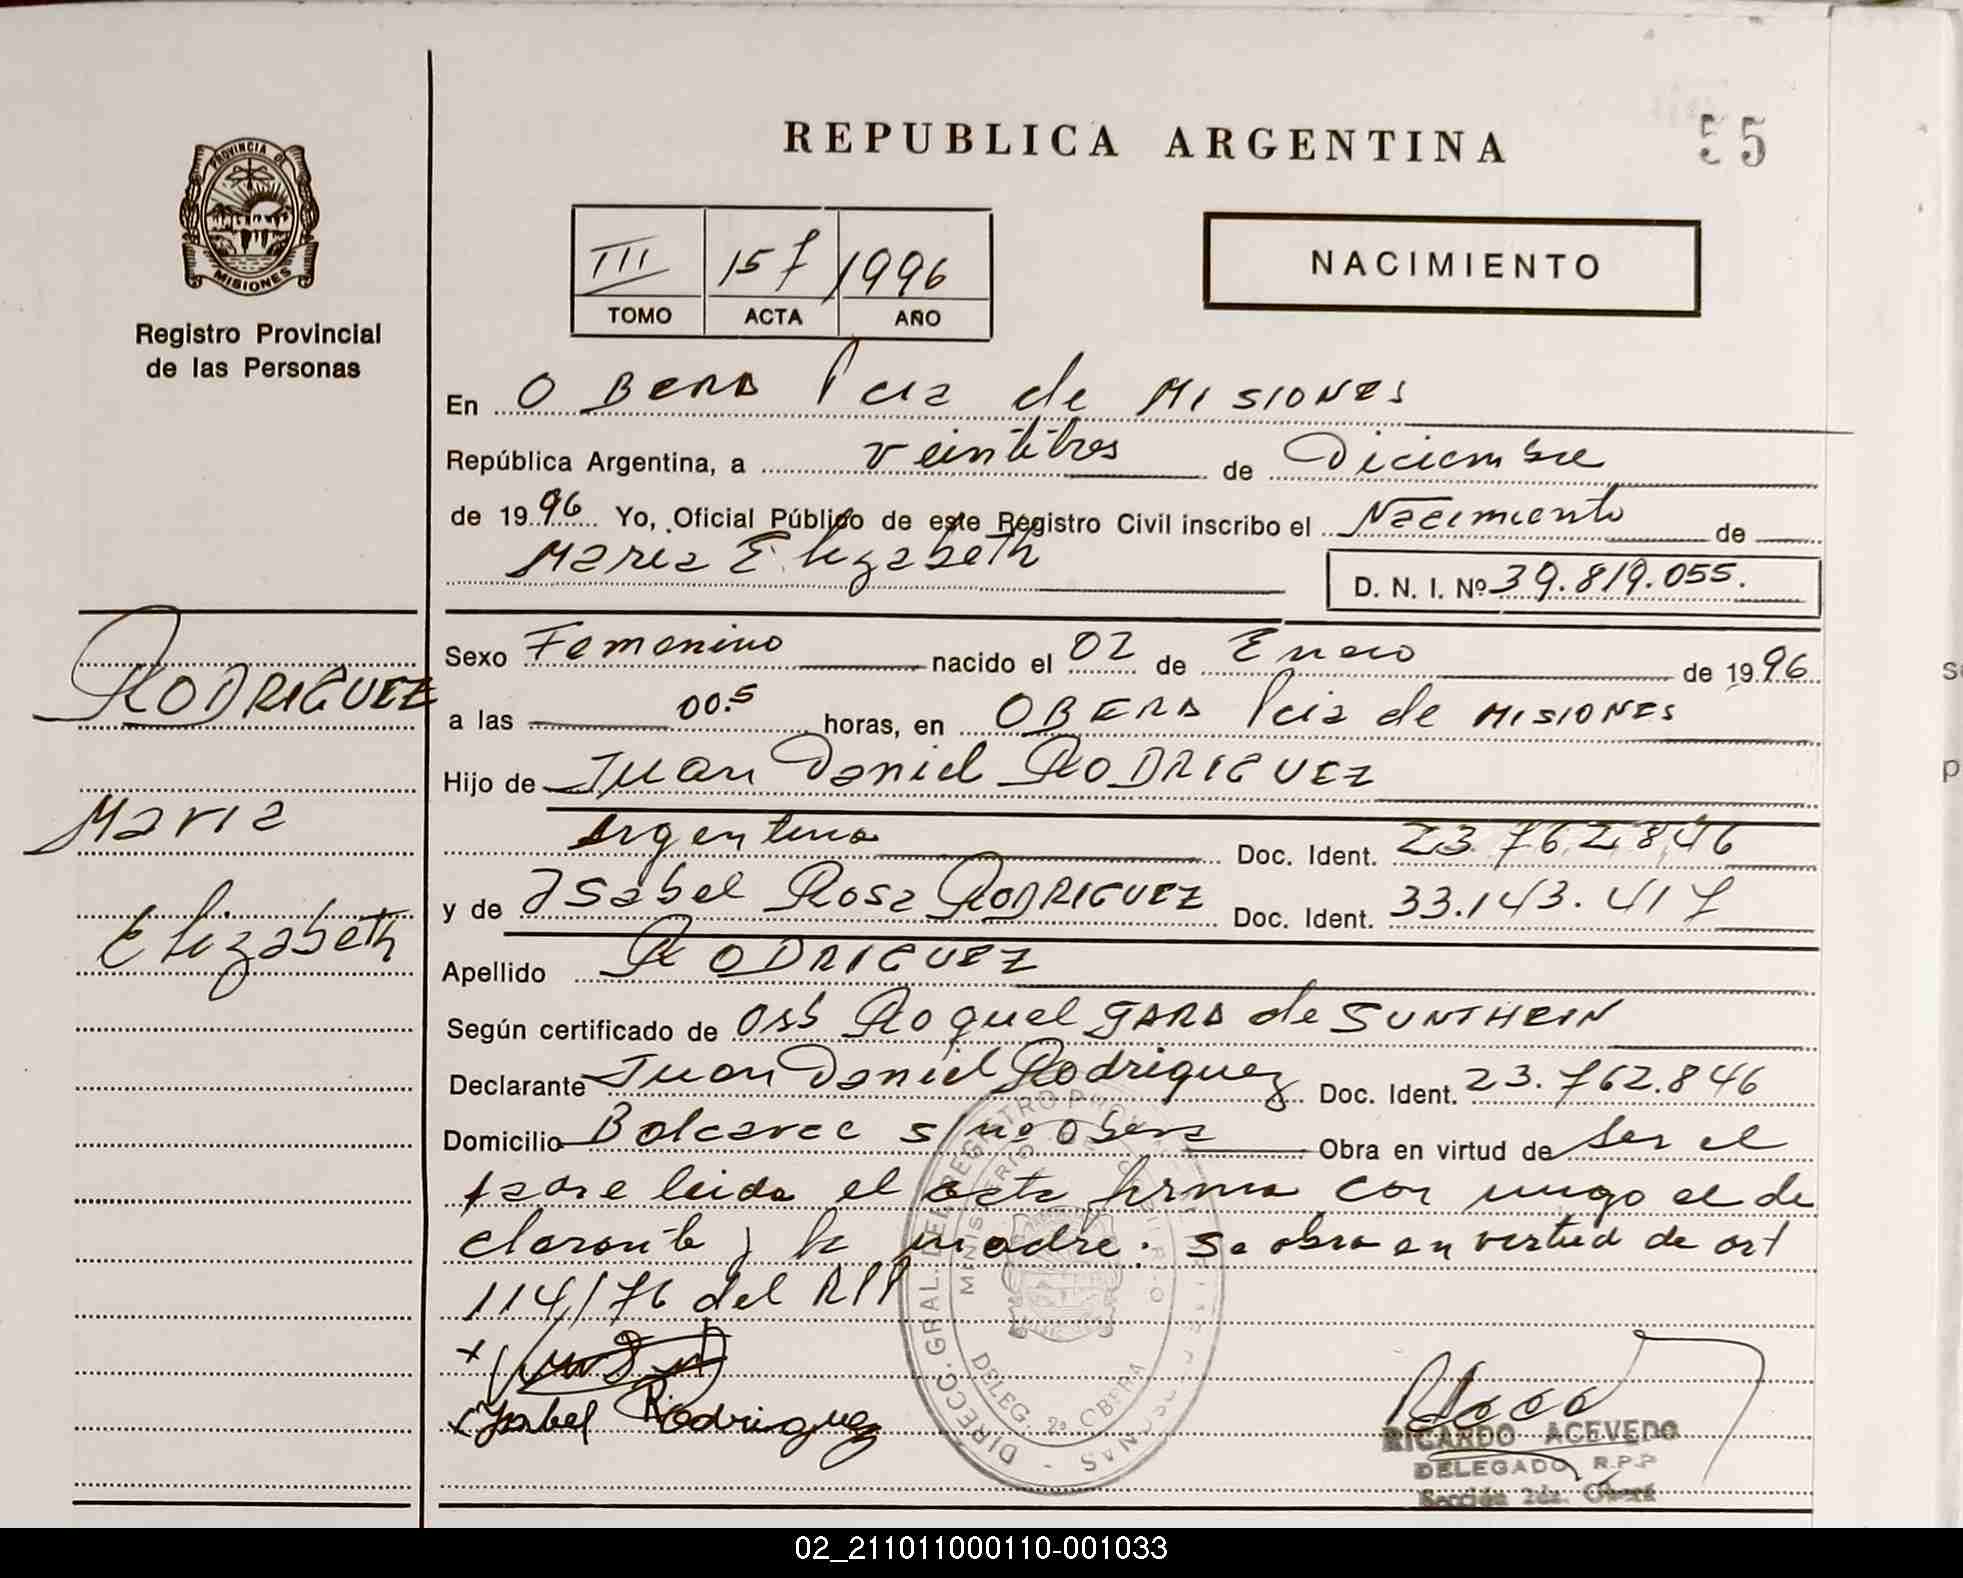 REPUBLICA ARGENTINA
55
PROVINCIA DE
MISIONES
Registro Provincial
de las Personas
III 157 1996
TOMO ACTA AÑO
NACIMIENTO
En OBERA Pcia de MISIONES
República Argentina, a veintitres de Diciembre
de 1996 Yo, Oficial Público de este Registro Civil inscribo el Nacimiento de
Maria Elizabeth
D. N. I. Nº 39.819.055.
RODRIGUEZ
Maria
Elizabeth
Sexo Femenino nacido el 02 de Enero de 1996
a las 00.5 horas, en OBERA Pcia de MISIONES
Hijo de Juan Daniel RODRIGUEZ
Argentina Doc. Ident. 23.762.846
y de Isabel Rosa RODRIGUEZ Doc. Ident. 33.143.417
Apellido RODRIGUEZ
Según certificado de Obst Raquel JARA de SUNTHEIN
Declarante Juan Daniel Rodriguez Doc. Ident. 23.762.846
Domicilio Balcarce s/no Obera Obra en virtud de ser el
padre leida el acta firma con migo el de
clarante y la madre. Se obra en virtud de art
114/76 del RPP
Isabel Rodriguez
DIRECC. GRAL. DEL REGISTRO PROV. DE PERSONAS
MINISTERIO DE GOBIERNO
DELEG. 2ª OBERA
RICARDO ACEVEDO
DELEGADO R.P.P
Sección 2da. Oberá
02_211011000110-001033